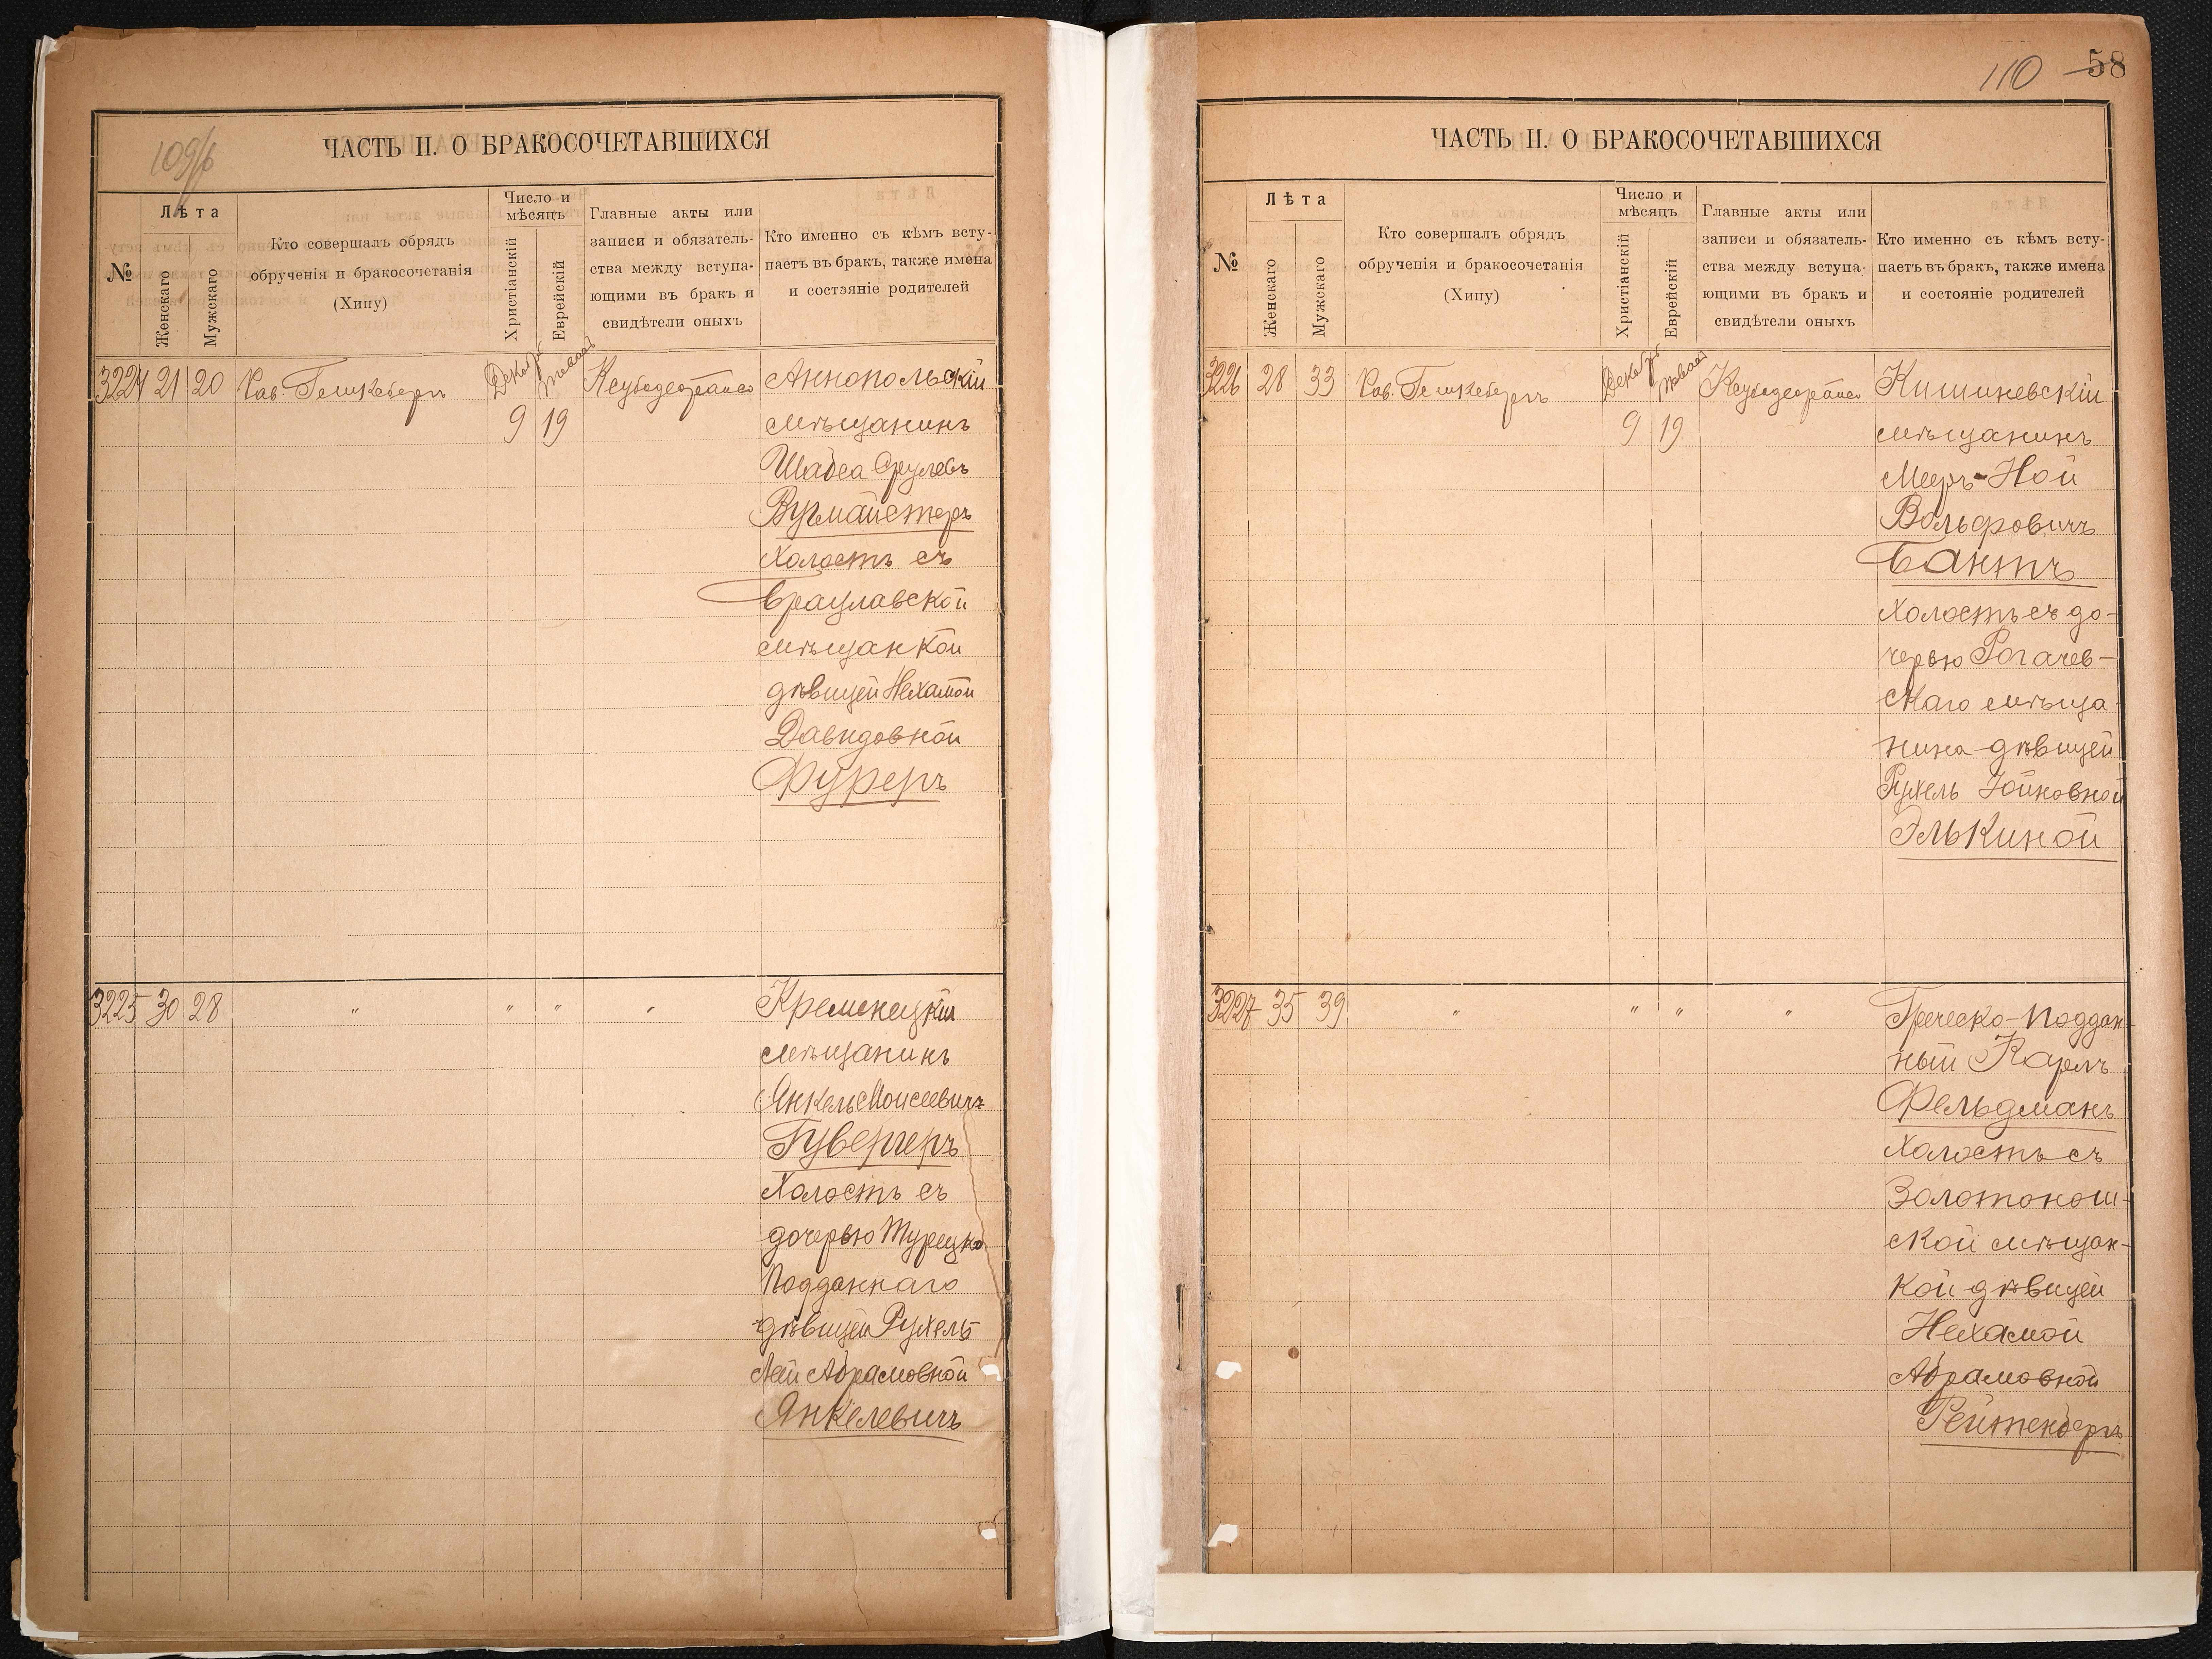 109/б
ЧАСТЬ II. О БРАКОСОЧЕТАВШИХСЯ
№
Лѣта
Женскаго
Мужскаго
Кто совершалъ обрядъ
обрученія и бракосочетанія
(Хипу)
Число и
мѣсяцъ
Христіанскій
Еврейскій
Главные акты или
записи и обязатель-
ства между вступа-
ющими въ бракъ и
свидѣтели оныхъ
Кто именно съ кѣмъ всту-
паетъ въ бракъ, также имена
и состояніе родителей
3224 21 20 Рав. Гешкебергъ Декабр
9 19
Аннопольскій
мѣщанинъ
Шабса Срулевъ
Вугмайстеръ
холостъ съ
Брацлавской
мѣщанкой
дѣвицей Нехамой
Давидовной
Фуреръ
3225 30 28 " " " "
Кременецкій
мѣщанинъ
Янкель Моисеевичъ
Гувергеръ
холостъ съ
дочерью Турецко
Подданнаго
дѣвицей Рухель
Леи Абрамовной
Янкелевичъ
110 58
ЧАСТЬ II. О БРАКОСОЧЕТАВШИХСЯ
№
Лѣта
Женскаго
Мужскаго
Кто совершалъ обрядъ
обрученія и бракосочетанія
(Хипу)
Число и
мѣсяцъ
Христіанскій
Еврейскій
Главные акты или
записи и обязатель-
ства между вступа-
ющими въ бракъ и
свидѣтели оныхъ
Кто именно съ кѣмъ всту-
паетъ въ бракъ, также имена
и состояніе родителей
3226 28 33 Рав. Гешкебергъ Декабр
9 19
Кишиневскій
мѣщанинъ
Мееръ-Ной
Вольфовичъ
Бантъ
холостъ съ до-
черью Рогачев-
скаго мѣща-
нина дѣвицей
Рухель Іойновной
Элькиной
3227 35 39 " " " "
Греческо-поддан-
ный Карлъ
Фельдманъ
холостъ съ
Золотонош-
ской мѣщан-
кой дѣвицей
Нехамой
Абрамовной
Рейтенбергъ